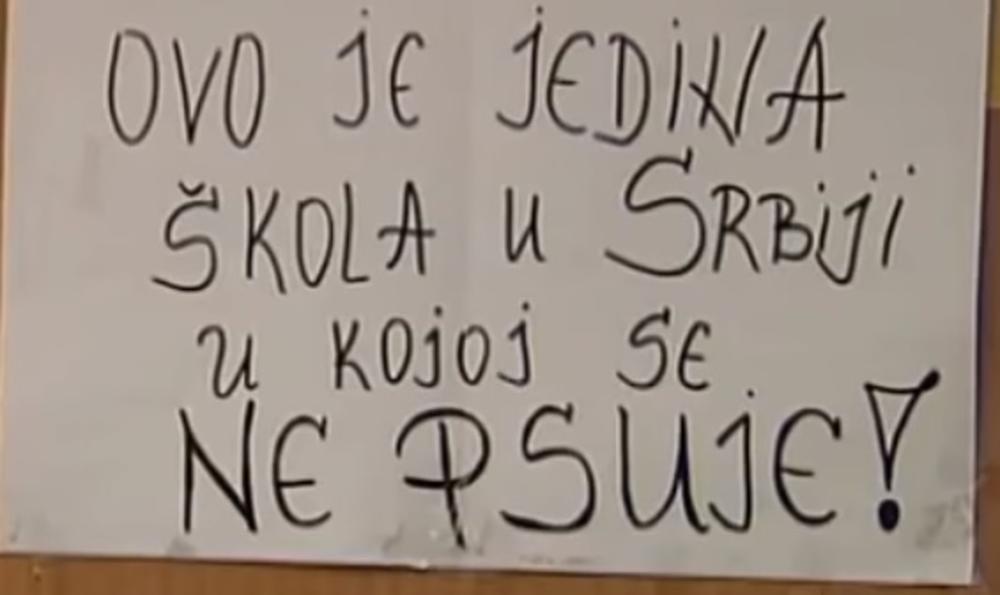 OVO JE JEDINA
ŠKOLA U SRBIJI
U KOJOJ SE
NE PSUJE!